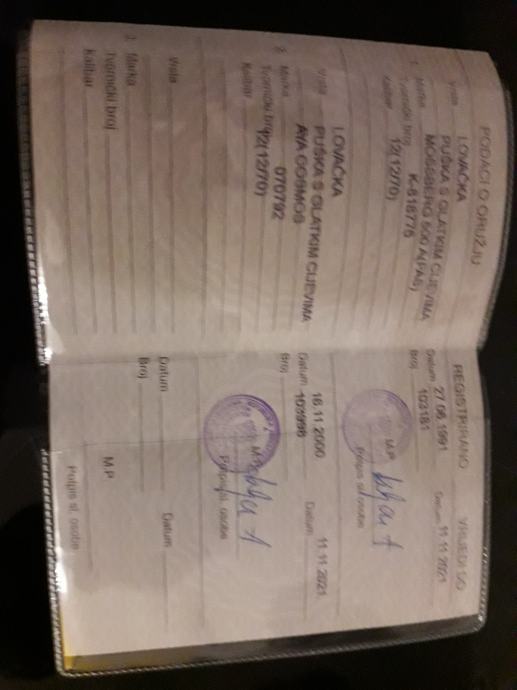 PODACI O ORUŽJU
Vrsta LOVAČKA
PUŠKA S GLATKIM CIJEVIMA
1. Marka MOSSBERG 500 A(PAS)
Tvornički broj K-818775
Kalibar 12(12/70)
Vrsta LOVAČKA
PUŠKA S GLATKIM CIJEVIMA
2. Marka AYA COSMOS
Tvornički broj 070792
Kalibar 12(12/70)
Vrsta
3. Marka
Tvornički broj
Kalibar
REGISTRIRANO VRIJEDI DO
Datum 27.06.1991 Datum 11.11.2021.
Broj 103181
M.P.
Potpis sl. osobe
Datum 16.11.2000 Datum 11.11.2021.
Broj 103998
M.P.
Potpis sl. osobe
Datum Datum
Broj
M.P.
Potpis sl. osobe